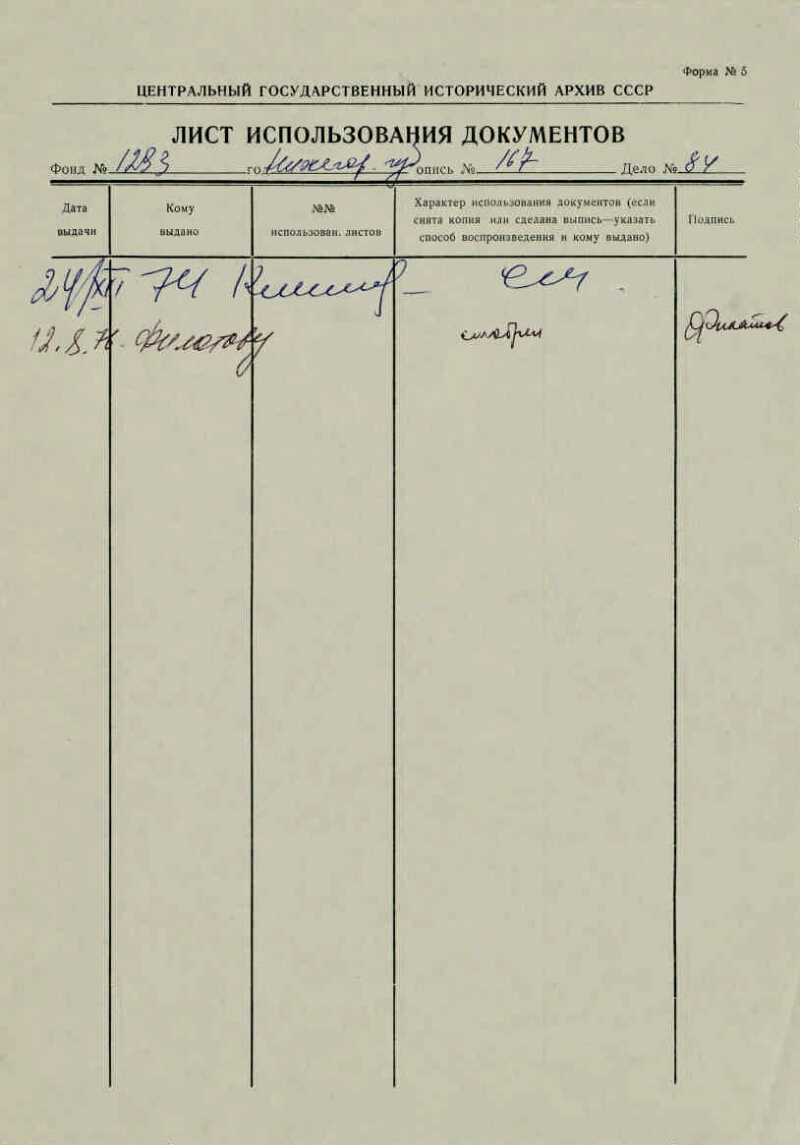 Форма № 5
ЦЕНТРАЛЬНЫЙ ГОСУДАРСТВЕННЫЙ ИСТОРИЧЕСКИЙ АРХИВ СССР
ЛИСТ ИСПОЛЬЗОВАНИЯ ДОКУМЕНТОВ
Фонд № 1283 год опись № 167 Дело № 84
Дата выдачи
Кому выдано
№№ использован. листов
Характер использования документов (если
снята копия или сделана выпись—указать
способ воспроизведения и кому выдано)
Подпись
24/XII 74
12.X. Филатову смотрел